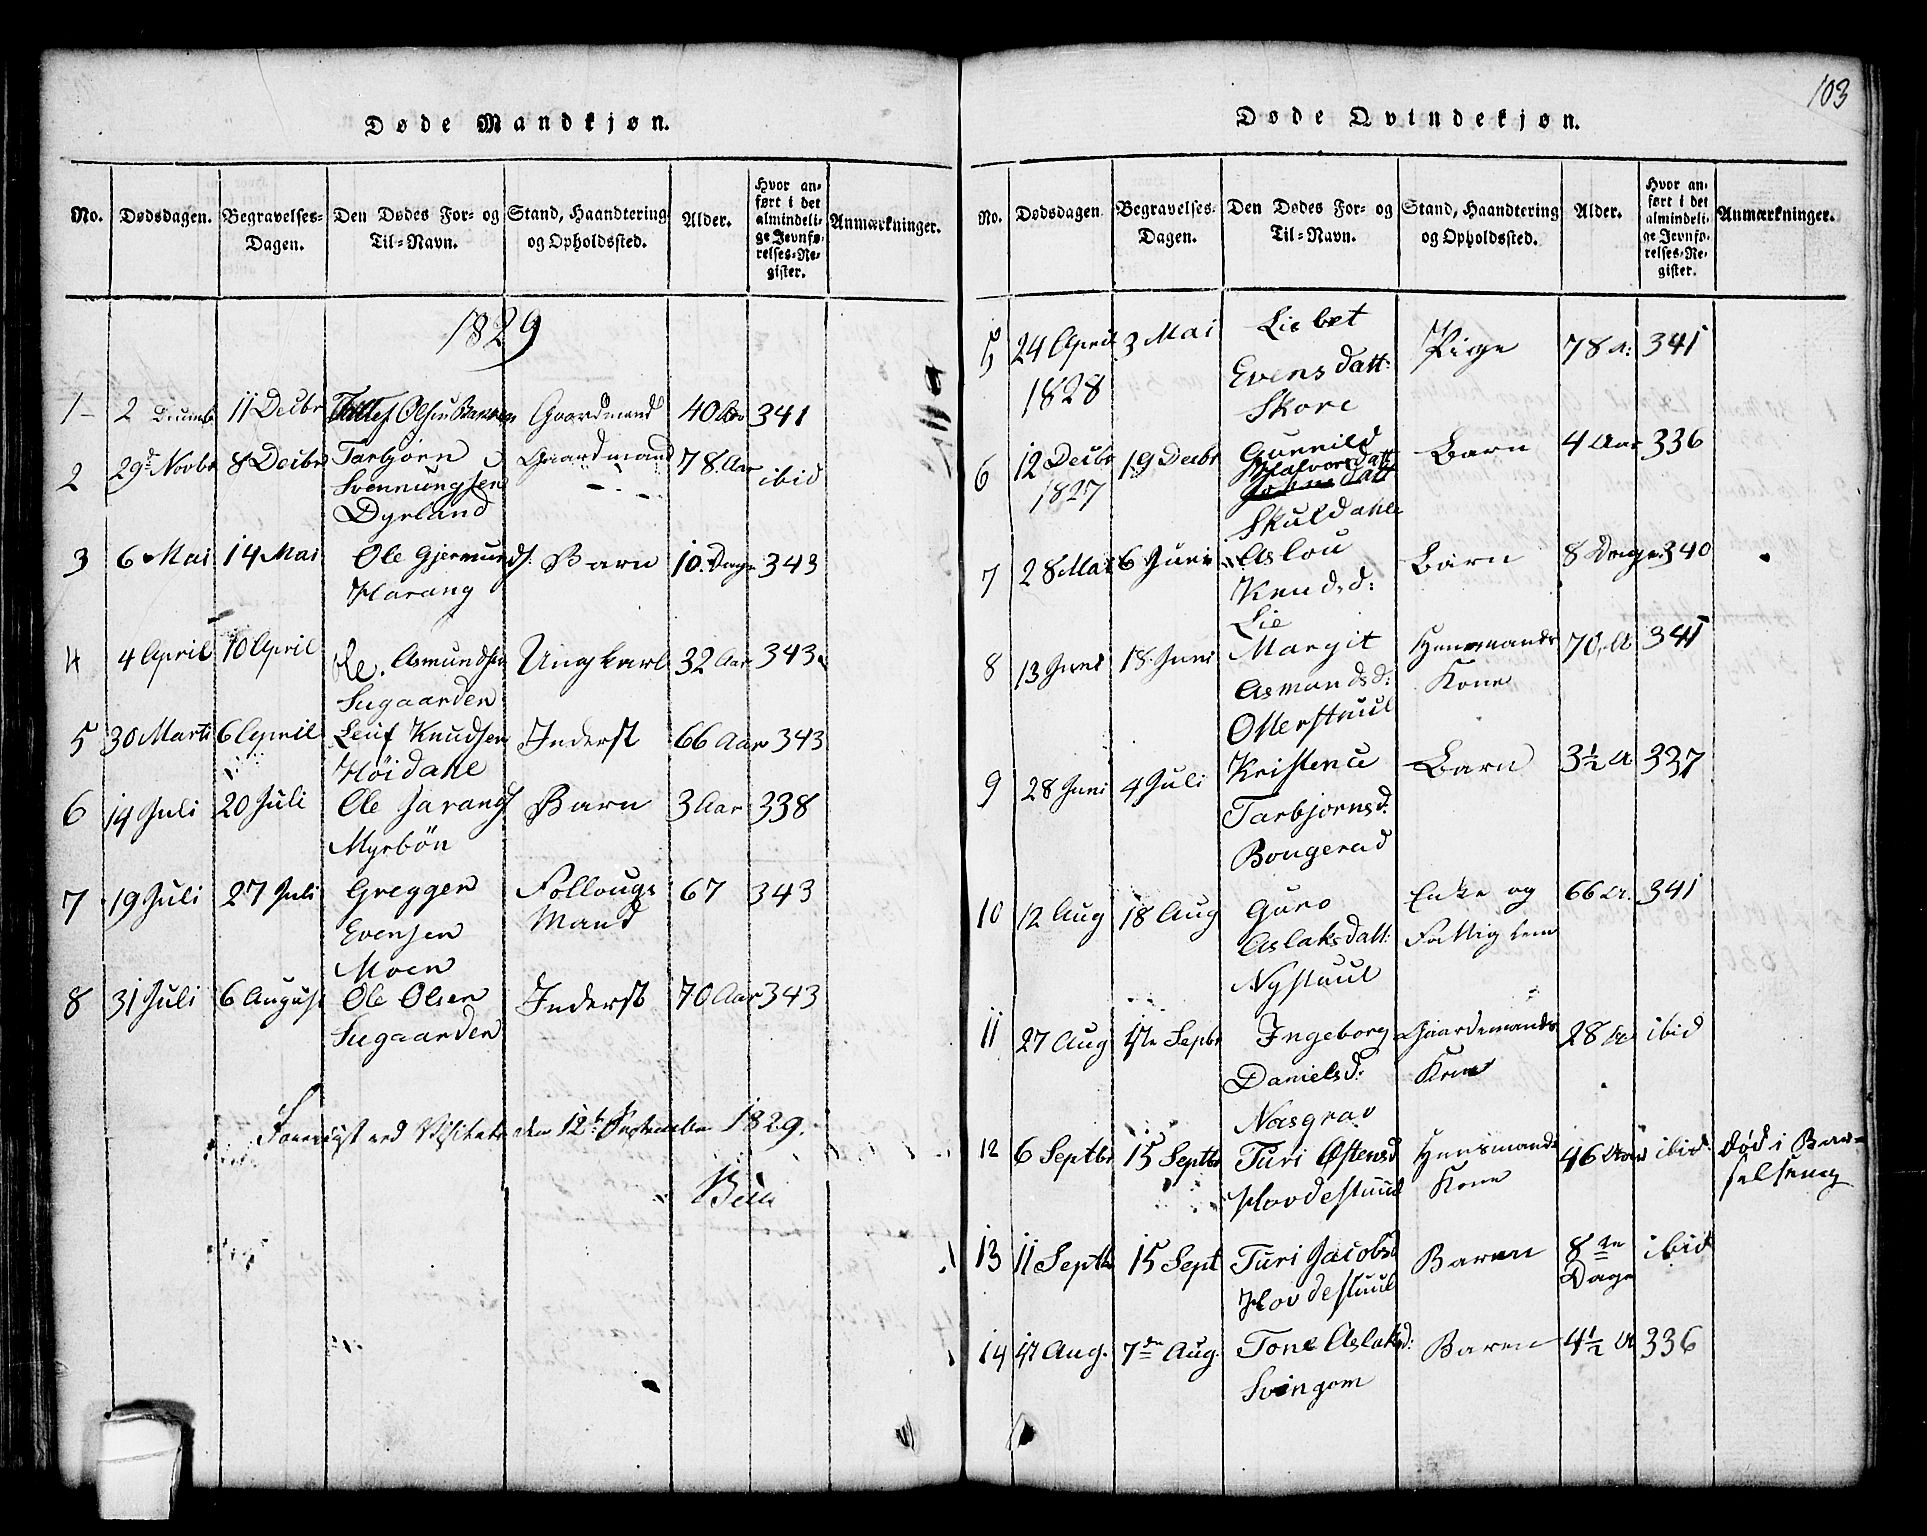 103
Døde Mandkjøn.
No. Dødsdagen. Begravelses-Dagen. Den Dødes For- og Til-Navn. Stand, Haandtering og Opholdssted. Alder. Hvor anført i det almindelige Jevnførelses-Register. Anmærkninger.
1829
1 2 11 Decbr Olsen Gaardmand 40 Aar 341
2 29d Novbr 8 Decbr Tarbjörn Gaardmand 78 Aar ibid
Svennungsen
Dyrland
3 6 Mai 14 Mai Ole Gjermunds: Barn 10. Dage 343
Harang
4 4 April 10 April Ole. Asmundsen Ungkarl 32 Aar 343
Sugaarden
5 30 Marts 6 April Leif Knudsen Inderst 66 Aar 343
Höidahl
6 14 Juli 20 Juli Ole Barn 3 Aar 338
Myrbön
7 19 Juli 27 Juli Gregger Follougs 67 343
Evensen Mand
Moen
8 31 Juli 6 August Ole Olsen Inderst 70 Aar 343
Sugaarden
ved den 12te September 1829.
Døde Qvindekjøn.
No. Dødsdagen. Begravelses-Dagen. Den Dødes For- og Til-Navn. Stand, Haandtering og Opholdssted. Alder. Hvor anført i det almindelige Jevnførelses-Register. Anmærkninger.
5 24 April 3 Mai Lisbet Pige 78 A: 341
1828 Evensdatt:
Skore
6 12 Decbr 19 Decbr Gunnild Barn 4 Aar 336
1827 Halvorsdatt
Skuldahle
7 28 Mai 6 Juni Aslou Barn 8 Dage 340
Knudsd:
Lie
8 13 Juni 18 Juni Margit Huusmands 70 A 341
Asmundsd: Kone
Otterstuul
9 28 Juni 4 Juli Kristence Barn 3½ A 337
Tarbjornsd:
Bougerud
10 12 Aug 18 Aug Guro Enke og 66 A. 341
Aslaksdatt: Fattiglem
Nystuul
11 27 Aug 4te Sepbr Ingeborg Gaardemands 28 A ibid
Danielsd: Kone
Næsgrav
12 6 Septbr 15 Septbr Turi Østensd Huusmands 46 Aar ibid død i Bar-
Hovdestuul Kone selseng
13 11 Septbr 15 Sept Turi Jacobsd Baren 8te ibid
Hovdestuul Dage
14 4 Aug. 7de Aug. Tone Aslaksd: Baren 4½ A 336
Svingom